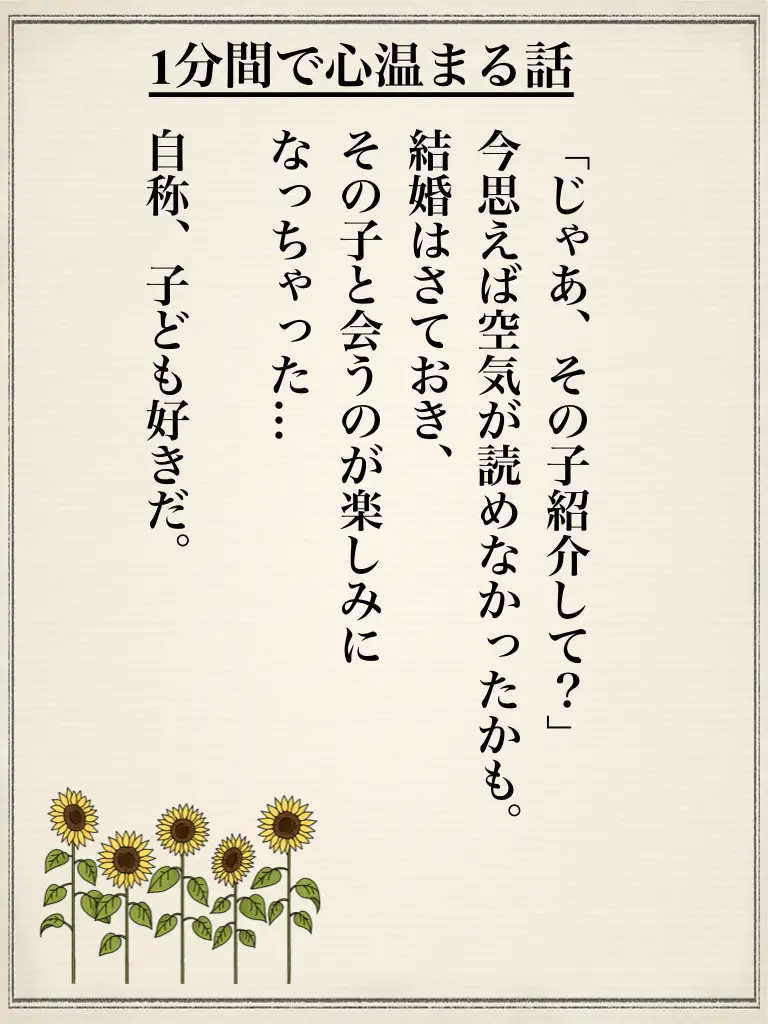 1分間で心温まる話
「じゃあ、その子紹介して？」
今思えば空気が読めなかったかも。
結婚はさておき、
その子と会うのが楽しみに
なっちゃった…
自称、子ども好きだ。